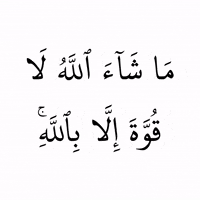 مَا شَآءَ ٱللَّهُ لَا
قُوَّةَ إِلَّا بِٱللَّهِۚ